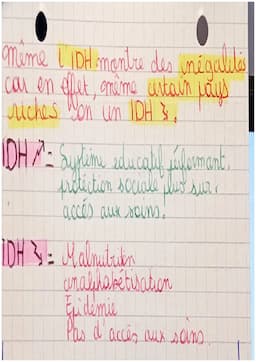 même l'IDH montre des inégalités
car en effet, même certain pays
riches son un IDH ↘.
IDH ↗ = Système educatif performant.
protection sociale plus sur.
accés aux soins.
IDH ↘ = Malnutrition
analphabétisation
Epidémie
Pas d'accés aux soins.